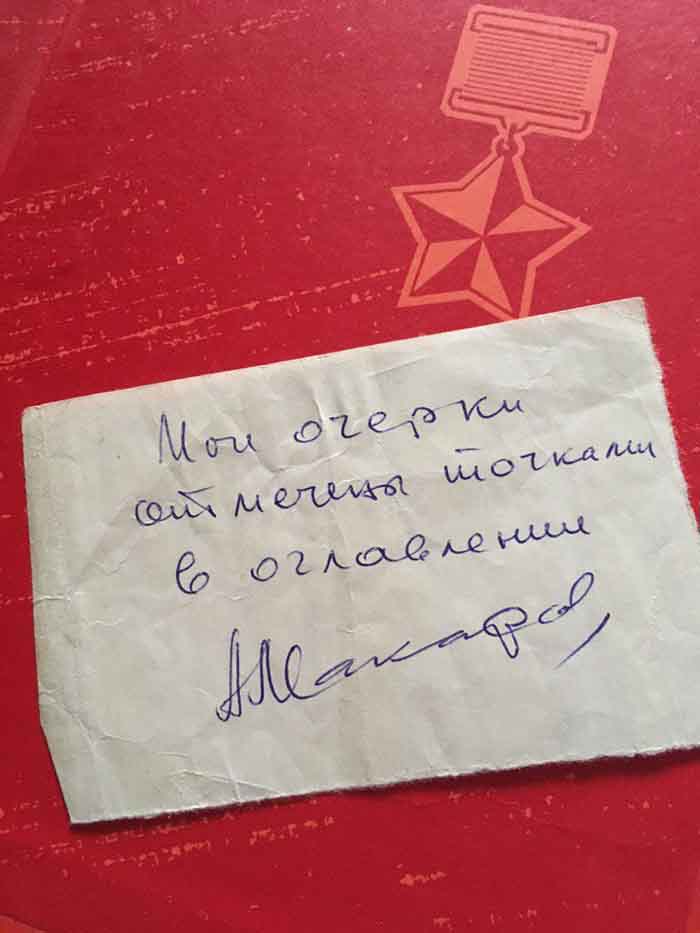 Мои очерки
отмечены точками
в оглавлении
АМакаров